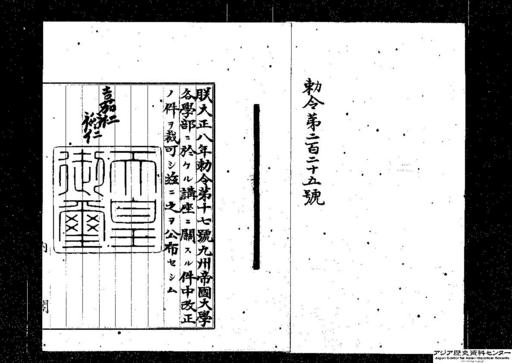 勅令第二百二十五號
朕大正八年勅令第十七號九州帝國大學
各學部ニ於ケル講座ニ關スル件中改正
ノ件ヲ裁可シ茲ニ之ヲ公布セシム
嘉仁
裕仁
天皇
御璽
内閣
アジア歴史資料センター
Japan Center for Asian Historical Records